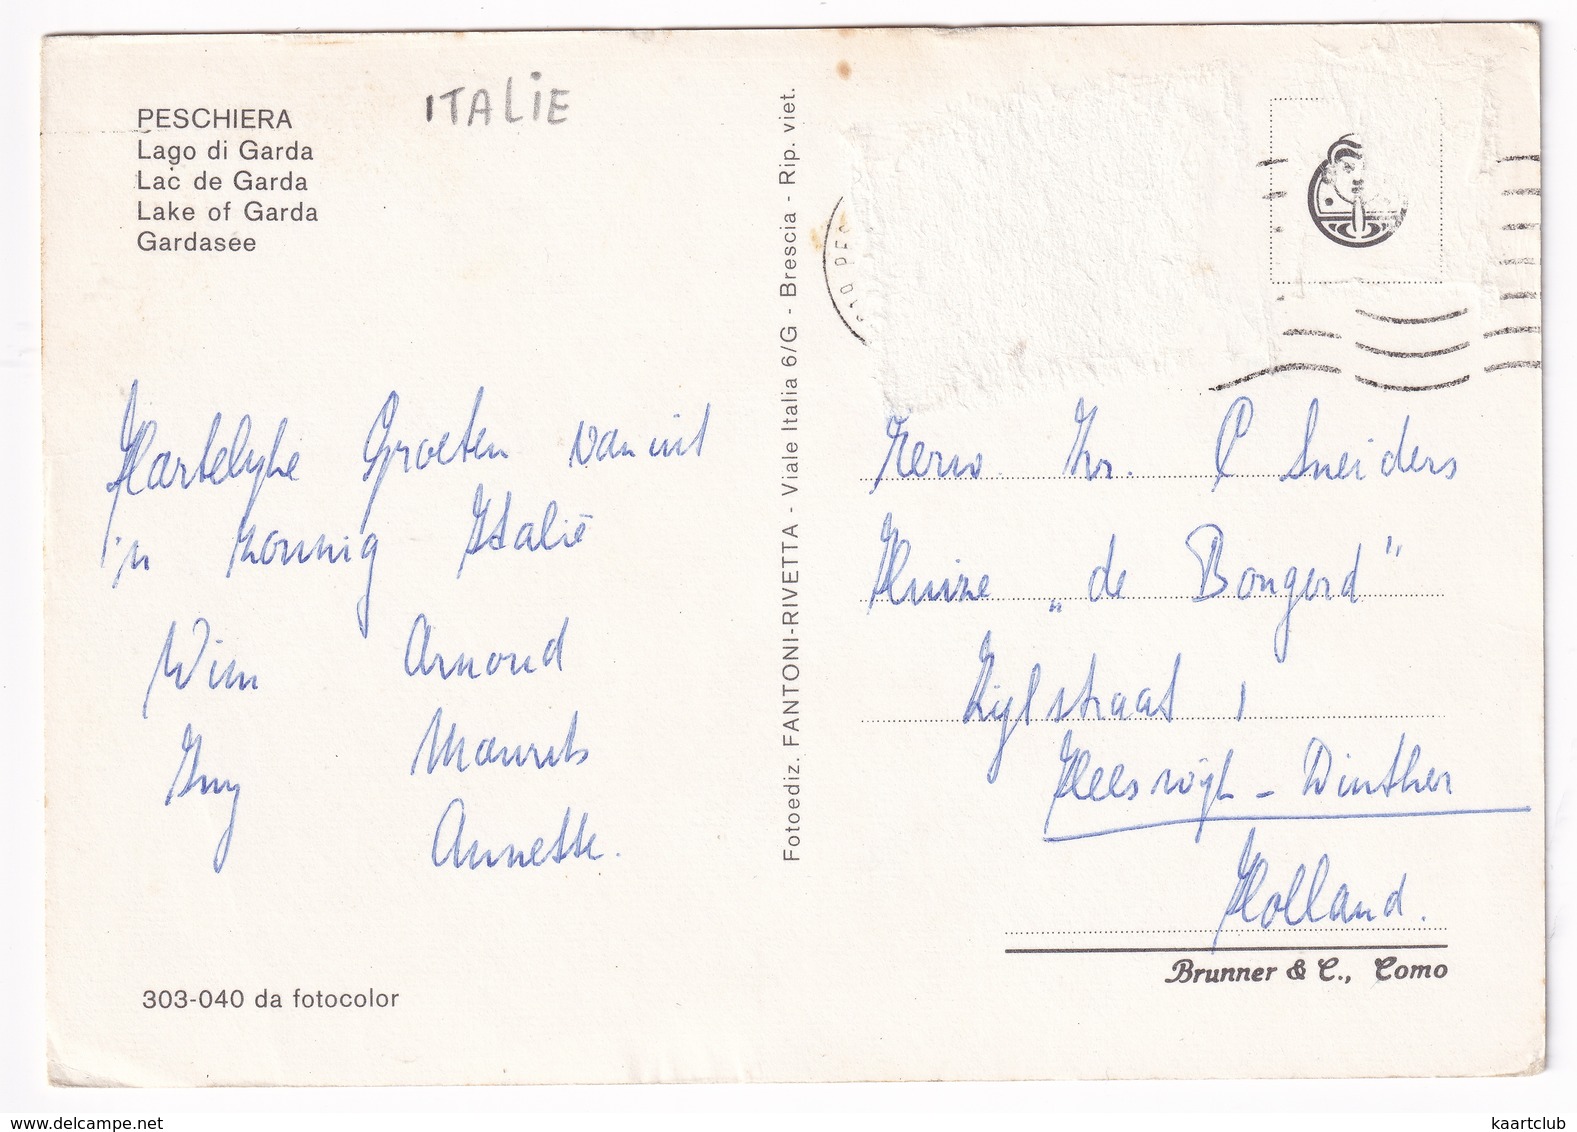 PESCHIERA
Lago di Garda
Lac de Garda
Lake of Garda
Gardasee
ITALIE
Hartelyke Groeten vanuit
in zonnig Italië
Wim Arnoud
Iny Maurits
Annette.
303-040 da fotocolor
Fotoediz. FANTONI-RIVETTA - Viale Italia 6/G - Brescia - Rip. viet.
010 PES
Eerw. Hr. P Sneiders
Huize „de Bongerd”
Zijlstraat 1
Heeswijk - Dinther
Holland.
Brunner & C., Como
www.delcampe.net
kaartclub